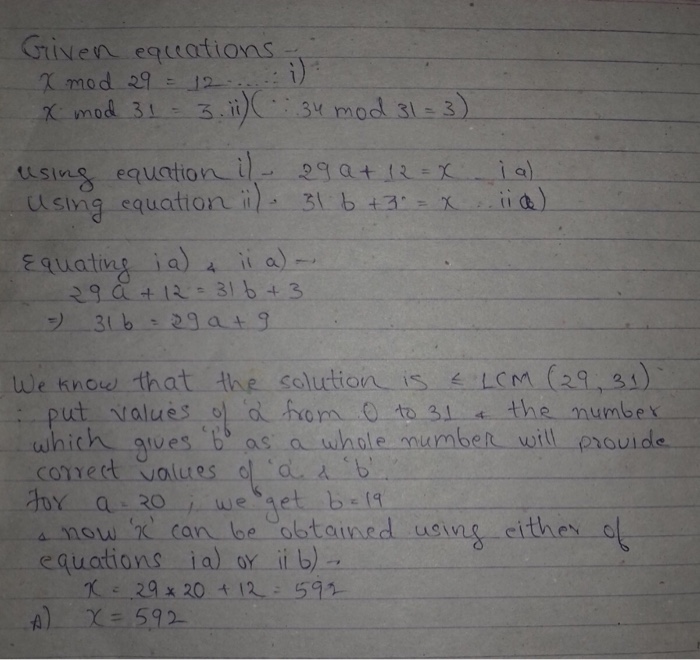 Given equations -
x mod 29 = 12 ..... i)
x mod 31 = 3. ii) (∵ 34 mod 31 = 3)
using equation i) - 29a + 12 = x .. ia)
Using equation ii) - 31 b + 3 = x .. iia)
Equating ia) & ii a) -
29a + 12 = 31b + 3
=> 31b = 29a + 9
We know that the solution is ≤ LCM (29, 31)
∴ put values of 'a' from 0 to 31 & the number
which gives 'b' as a whole number will provide
correct values of 'a' & 'b'.
for a = 20, we get b = 19
& now 'x' can be obtained using either of
equations ia) or ii b) -
x = 29 * 20 + 12 = 592
A) x = 592